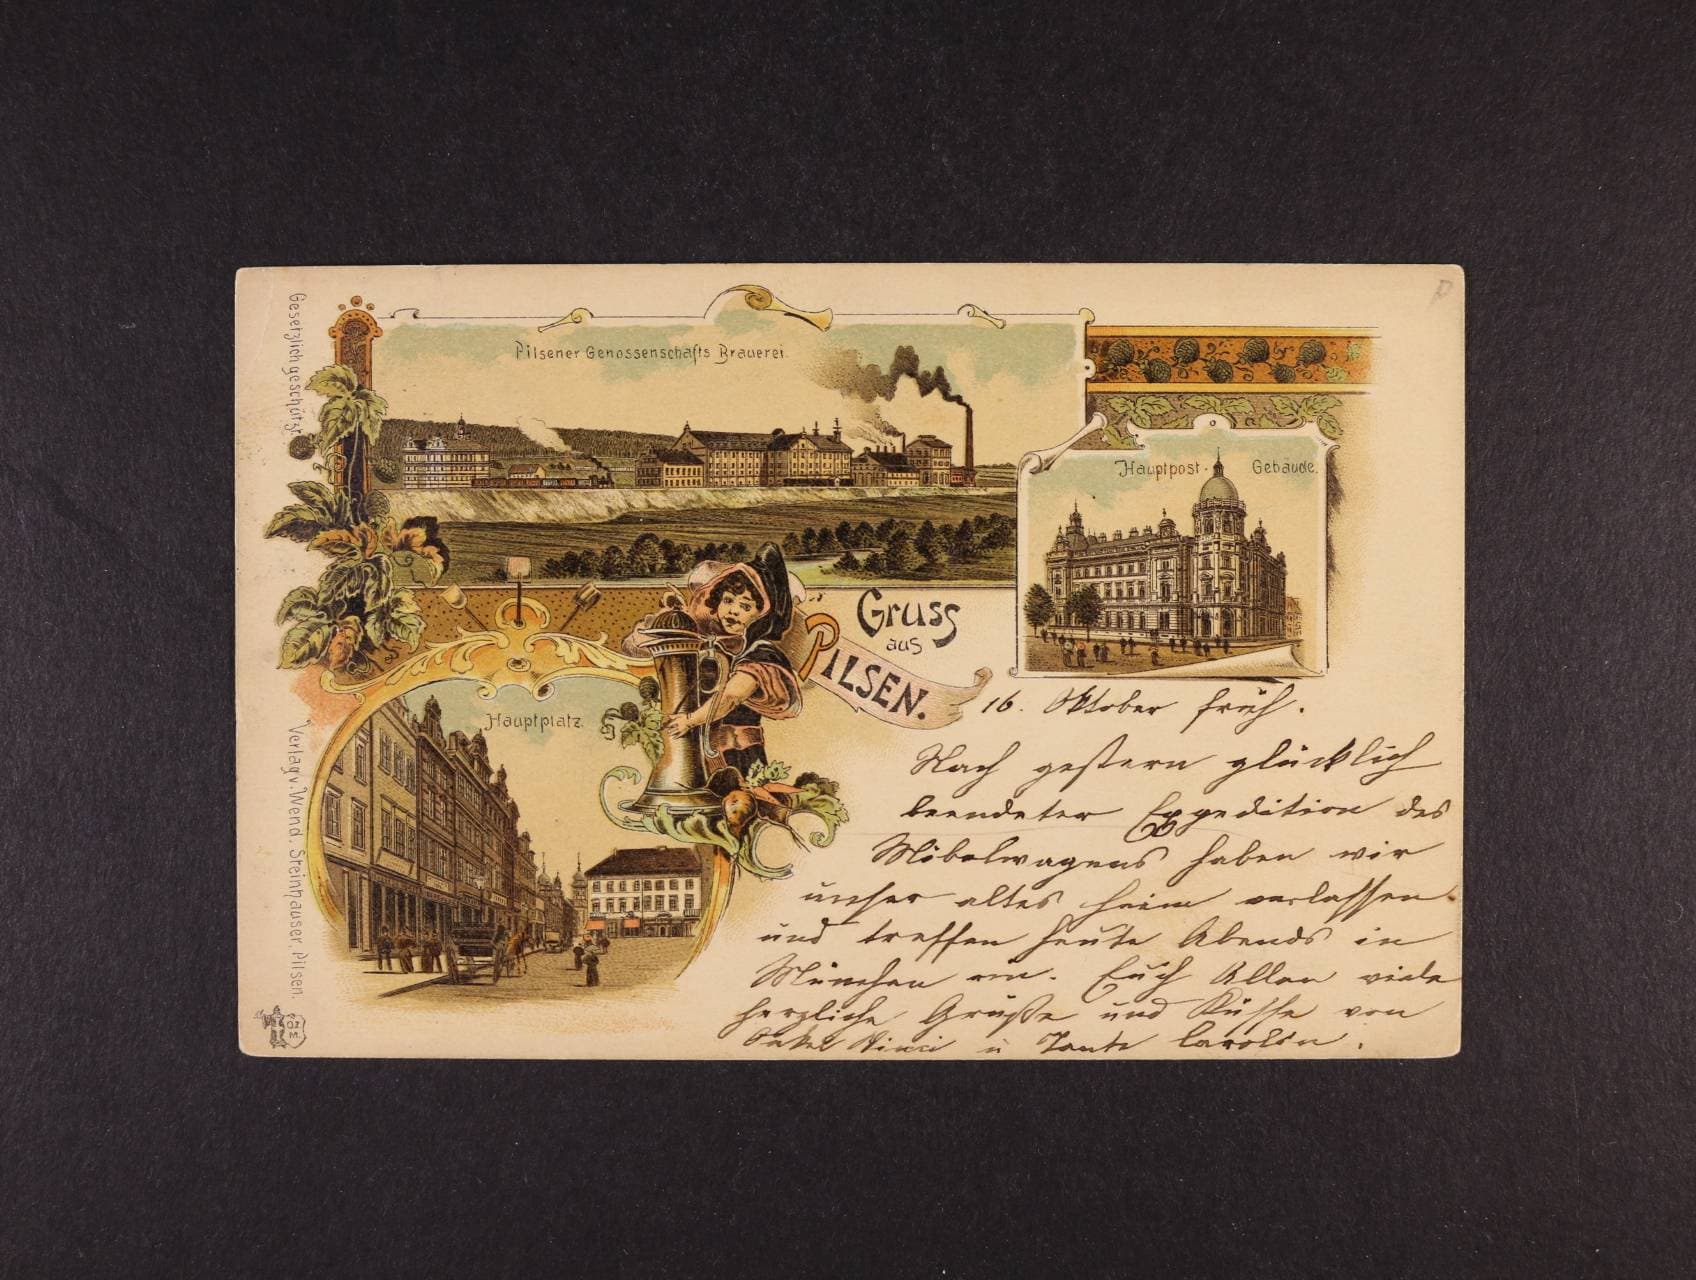 Gesetzlich geschützt.
Verlag v. Wend. Steinhauser, Pilsen.
Pilsener Genossenschafts Brauerei.
Hauptpost-Gebäude.
Gruss
aus
Pilsen.
Hauptplatz.
16. Oktober früh.
Nach gestern glücklich
beendeter Expedition des
Möbelwagens haben wir
unser altes Heim verlassen
und treffen heute Abends in
München ein. Euch Allen viele
herzliche Grüße und Küsse von
Onkel u Tante Carolin.